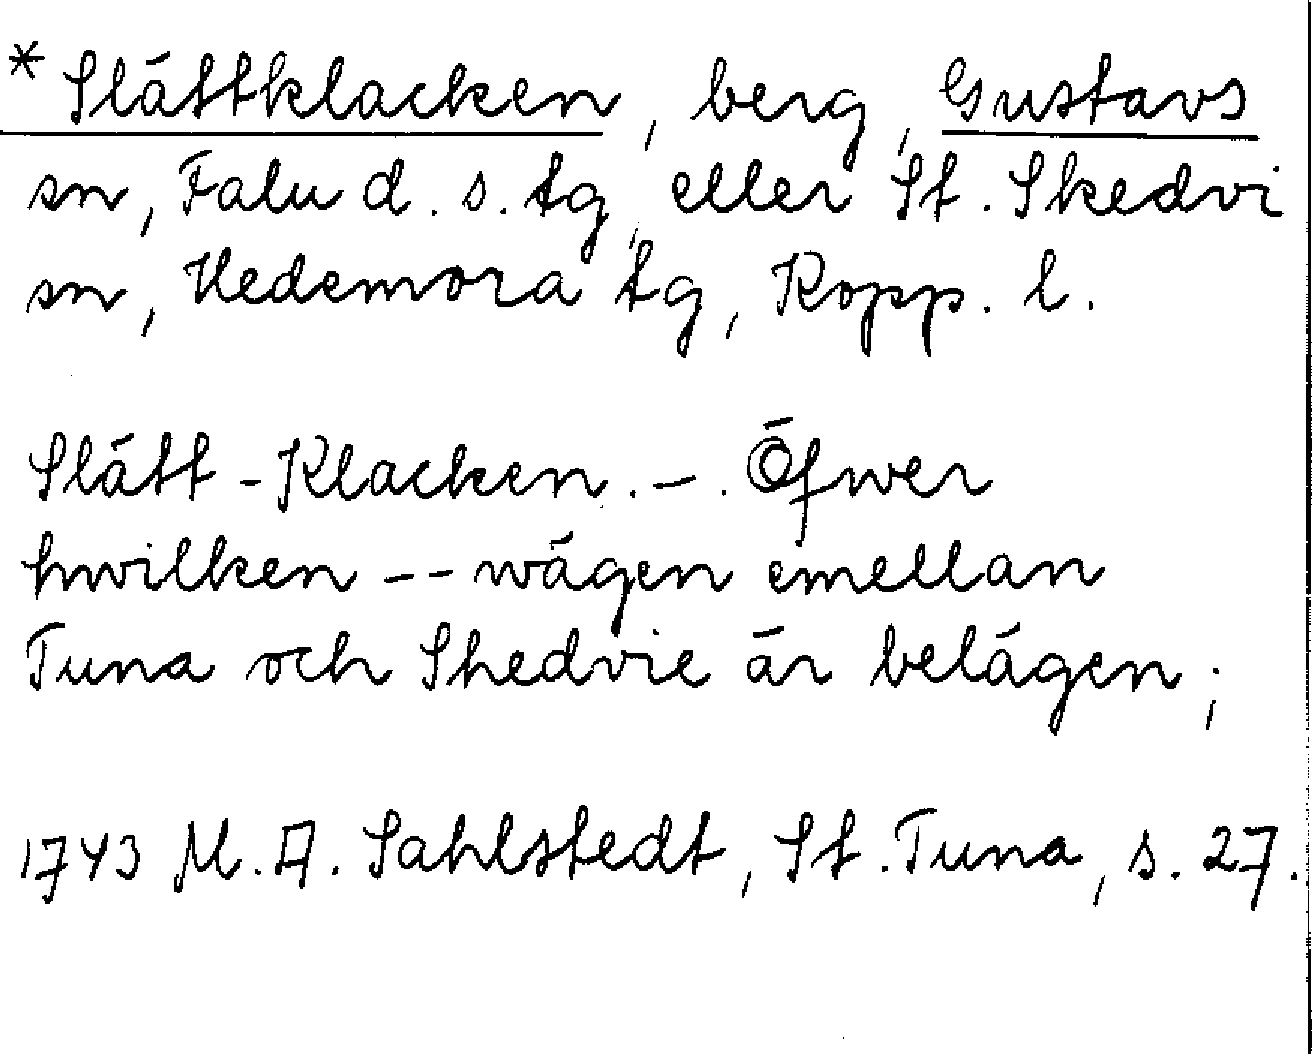 * Slättklacken, berg, Gustavs
sn, Falu d. s. tg, eller St. Skedvi
sn, Hedemora tg, Kopp. l.
Slätt-Klacken. – . Öfwer
hwilken -- wägen emellan
Tuna och Skedvie är belägen;
1743 M. A. Sahlstedt, St. Tuna, s. 27.